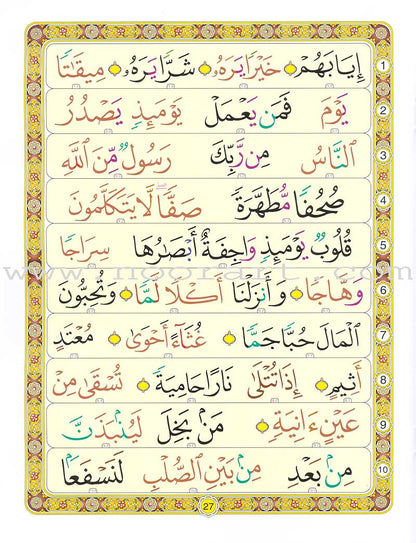 إِيَابَهُمْ ۞ خَيْرًا يَرَهُۥ ۞ شَرًّا يَرَهُۥ ۞ مِيقَٰتًا 1
يَوْمَ فَمَن يَعْمَلْ يَوْمَئِذٍ يَصْدُرُ 2
ٱلنَّاسُ مِن رَّبِّكَ رَسُولٌ مِّنَ ٱللَّهِ 3
صُحُفًا مُّطَهَّرَةً صَفًّا لَّا يَتَكَلَّمُونَ 4
قُلُوبٌ يَوْمَئِذٍ وَاجِفَةٌ أَبْصَٰرُهَا سِرَاجًا 5
وَهَّاجًا ۞ وَأَنزَلْنَا أَكْلًا لَّمًّا ۞ وَتُحِبُّونَ 6
ٱلْمَالَ حُبًّا جَمًّا ۞ غُثَآءً أَحْوَىٰ ۞ مُعْتَدٍ 7
أَثِيمٍ ۞ إِذَا تُتْلَىٰ نَارًا حَامِيَةً ۞ تُسْقَىٰ مِنْ 8
عَيْنٍ ءَانِيَةٍ ۞ مَنۢ بَخِلَ لَيُنۢبَذَنَّ 9
مِنۢ بَعْدِ مِنۢ بَيْنِ ٱلصُّلْبِ لَنَسْفَعًۢا 10
27
www.noorart.com